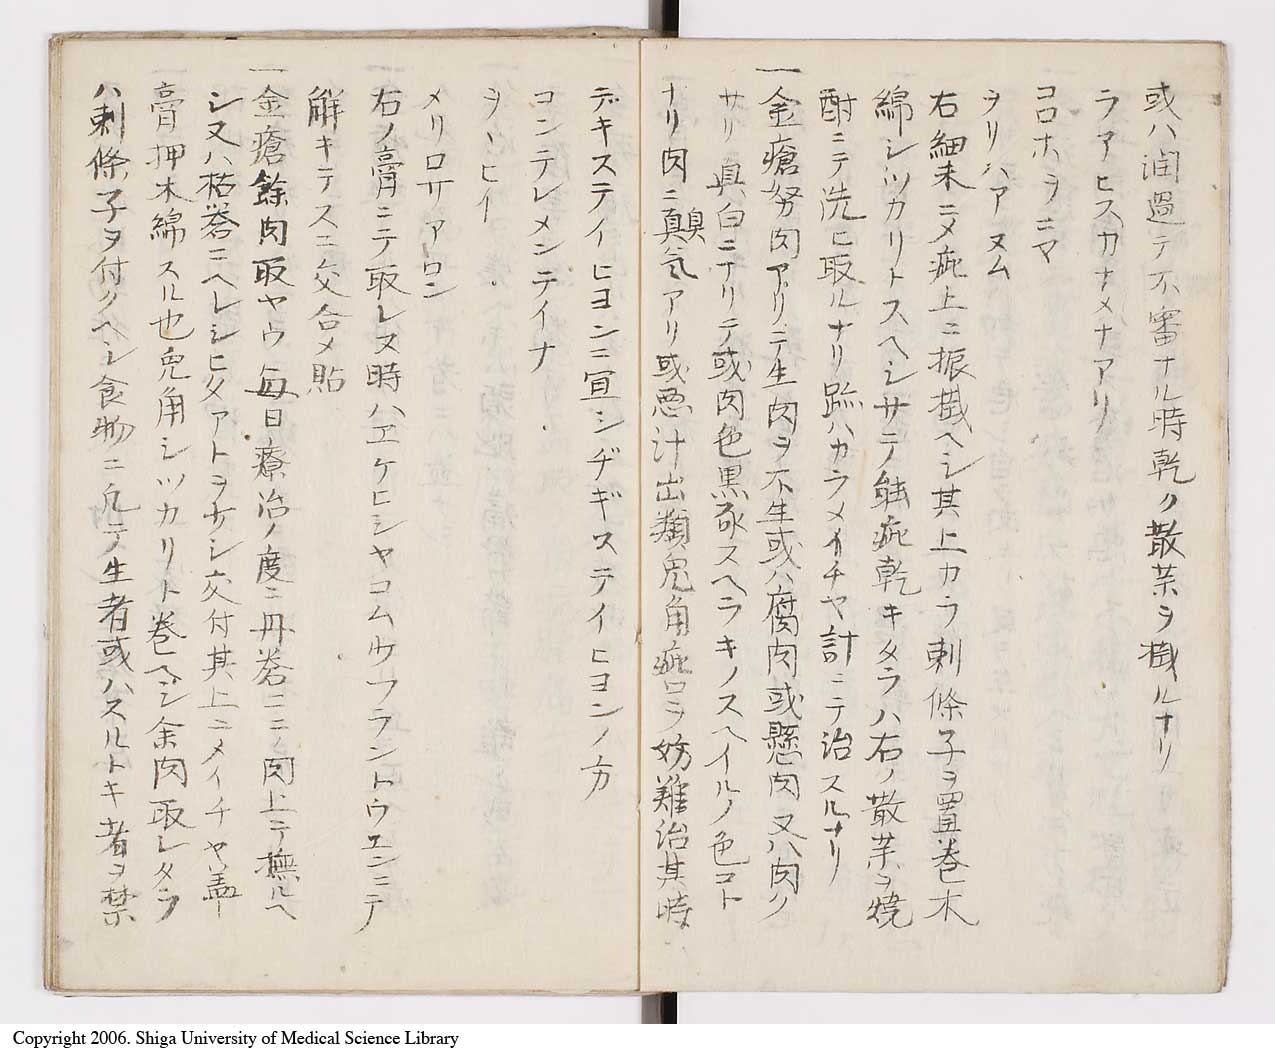 或ハ潤過テ不審ナル時乾ク散薬ヲ擑ルナリ
ラアヒスカナメナアリ
コロホラニマ
ヲリハアヌム
右細末ニメ疵上ニ振掛ヘシ其上カラ剌條子ヲ置巻木
綿シツカリトスヘシサテ能疵乾キタラハ右ノ散薬ヲ焼
酎ニテ洗ヒ取ルナリ跡ハカラメイチヤ計ニテ治スルナリ
一金瘡努肉アリテ生肉ヲ不生或ハ腐肉或懸肉又ハ肉ク
サリ真白ニナリテ或肉色黒豕スヘラキノスヘイルノ色コト
ナリ肉ニ臭気アリ或悪汁出類兎角疵口ヲ妨難治其時
デキステイヒヨンニ宣シヂギステイヒヨンノ方
コンテレメンテイナ
ヲーヒイ
メリロサアロン
右ノ膏ニテ取レヌ時ハヱケヒシヤコムウフラントウエンニテ
解キテスニ交合メ貼
一金瘡餘肉取ヤウ毎日療治ノ度ニ丹礬ニ肉上テ撫ルヘ
シ又ハ枯礬ニヘレシヒタアトヲサシ交付其上ニメイチヤ蓋
膏押木綿スル也兎角シツカリト巻ヘシ余肉取レタラ
ハ剌條子ヲ付クヘシ食物ニ凡テ生者或ハスルトキ者ヲ禁
Copyright 2006. Shiga University of Medical Science Library